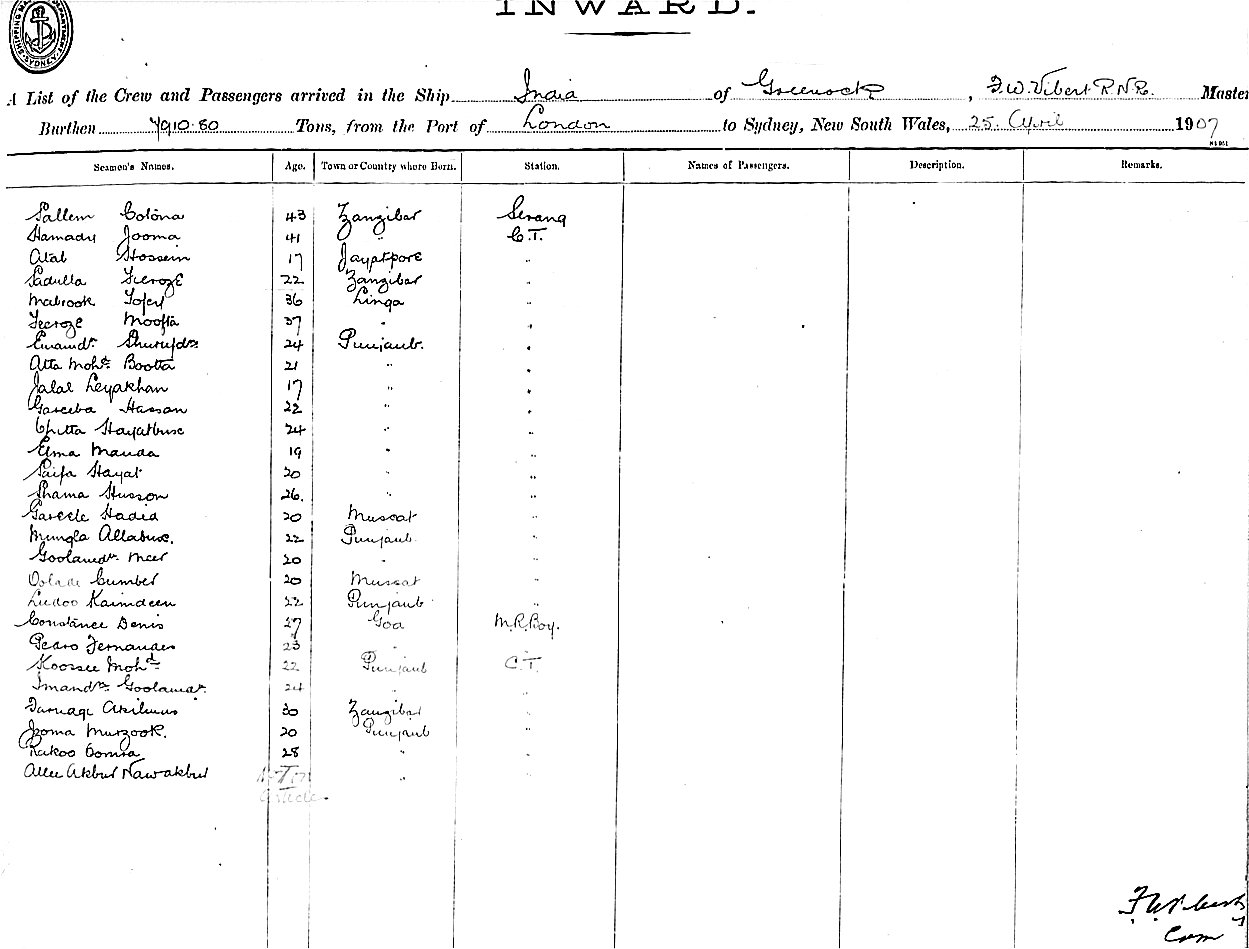 INWARD.
SHIPPING SYDNEY.
A List of the Crew and Passengers arrived in the Ship India of Greenock, F.W. Vibert R.N.R. Master
Burthen 7910.80 Tons, from the Port of London to Sydney, New South Wales, 25. April 1907
Seamen's Names. Age. Town or Country where Born. Station. Names of Passengers. Description. Remarks.
Sallem Colona 43 Zanzibar Serang
Hamady Jooma 41 " C.T.
Atal Hossein 17 Jayatpore "
Sadulla Feroze 22 Zanzibar "
Mabrook 36 Linga "
Feroze Moofta 37 " "
Emamdn 24 Punjaub. "
Atta Mohd. Bootta 21 " "
Jalal Leyakhan 17 " "
Gareeba Hassan 22 " "
Chitta Hayatbux 24 " "
Elma Manda 19 " "
Saifa Hayat 20 " "
Shama Husson 26. " "
Gareele Hadia 20 Muscat "
Mungla Allabux. 22 Punjaub "
Goolamdn. Meer 20 " "
Cumber 20 Muscat "
Ludoo Kaimdeen 22 Punjaub "
Constance Denis 27 Goa M.R. Boy.
Pedro Fernandes 23
Koossee Mohd. 22 Punjaub C.T.
Imamdn. Goolamdn. 24 " "
30 Zanzibar "
Jooma Murzook. 20 Punjaub "
Rukoo 28 " "
Allee Akbur Nawakbur Not on " "
Articles.
Com